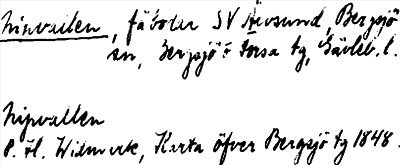 Nipvallen, fäbodar SV Älvsund, Bergsjö
sn, Bergsjö o Forsa tg, Gävleb. l.
Nipvallen
P. H. Widmark, Karta öfver Bergsjö tg 1848.